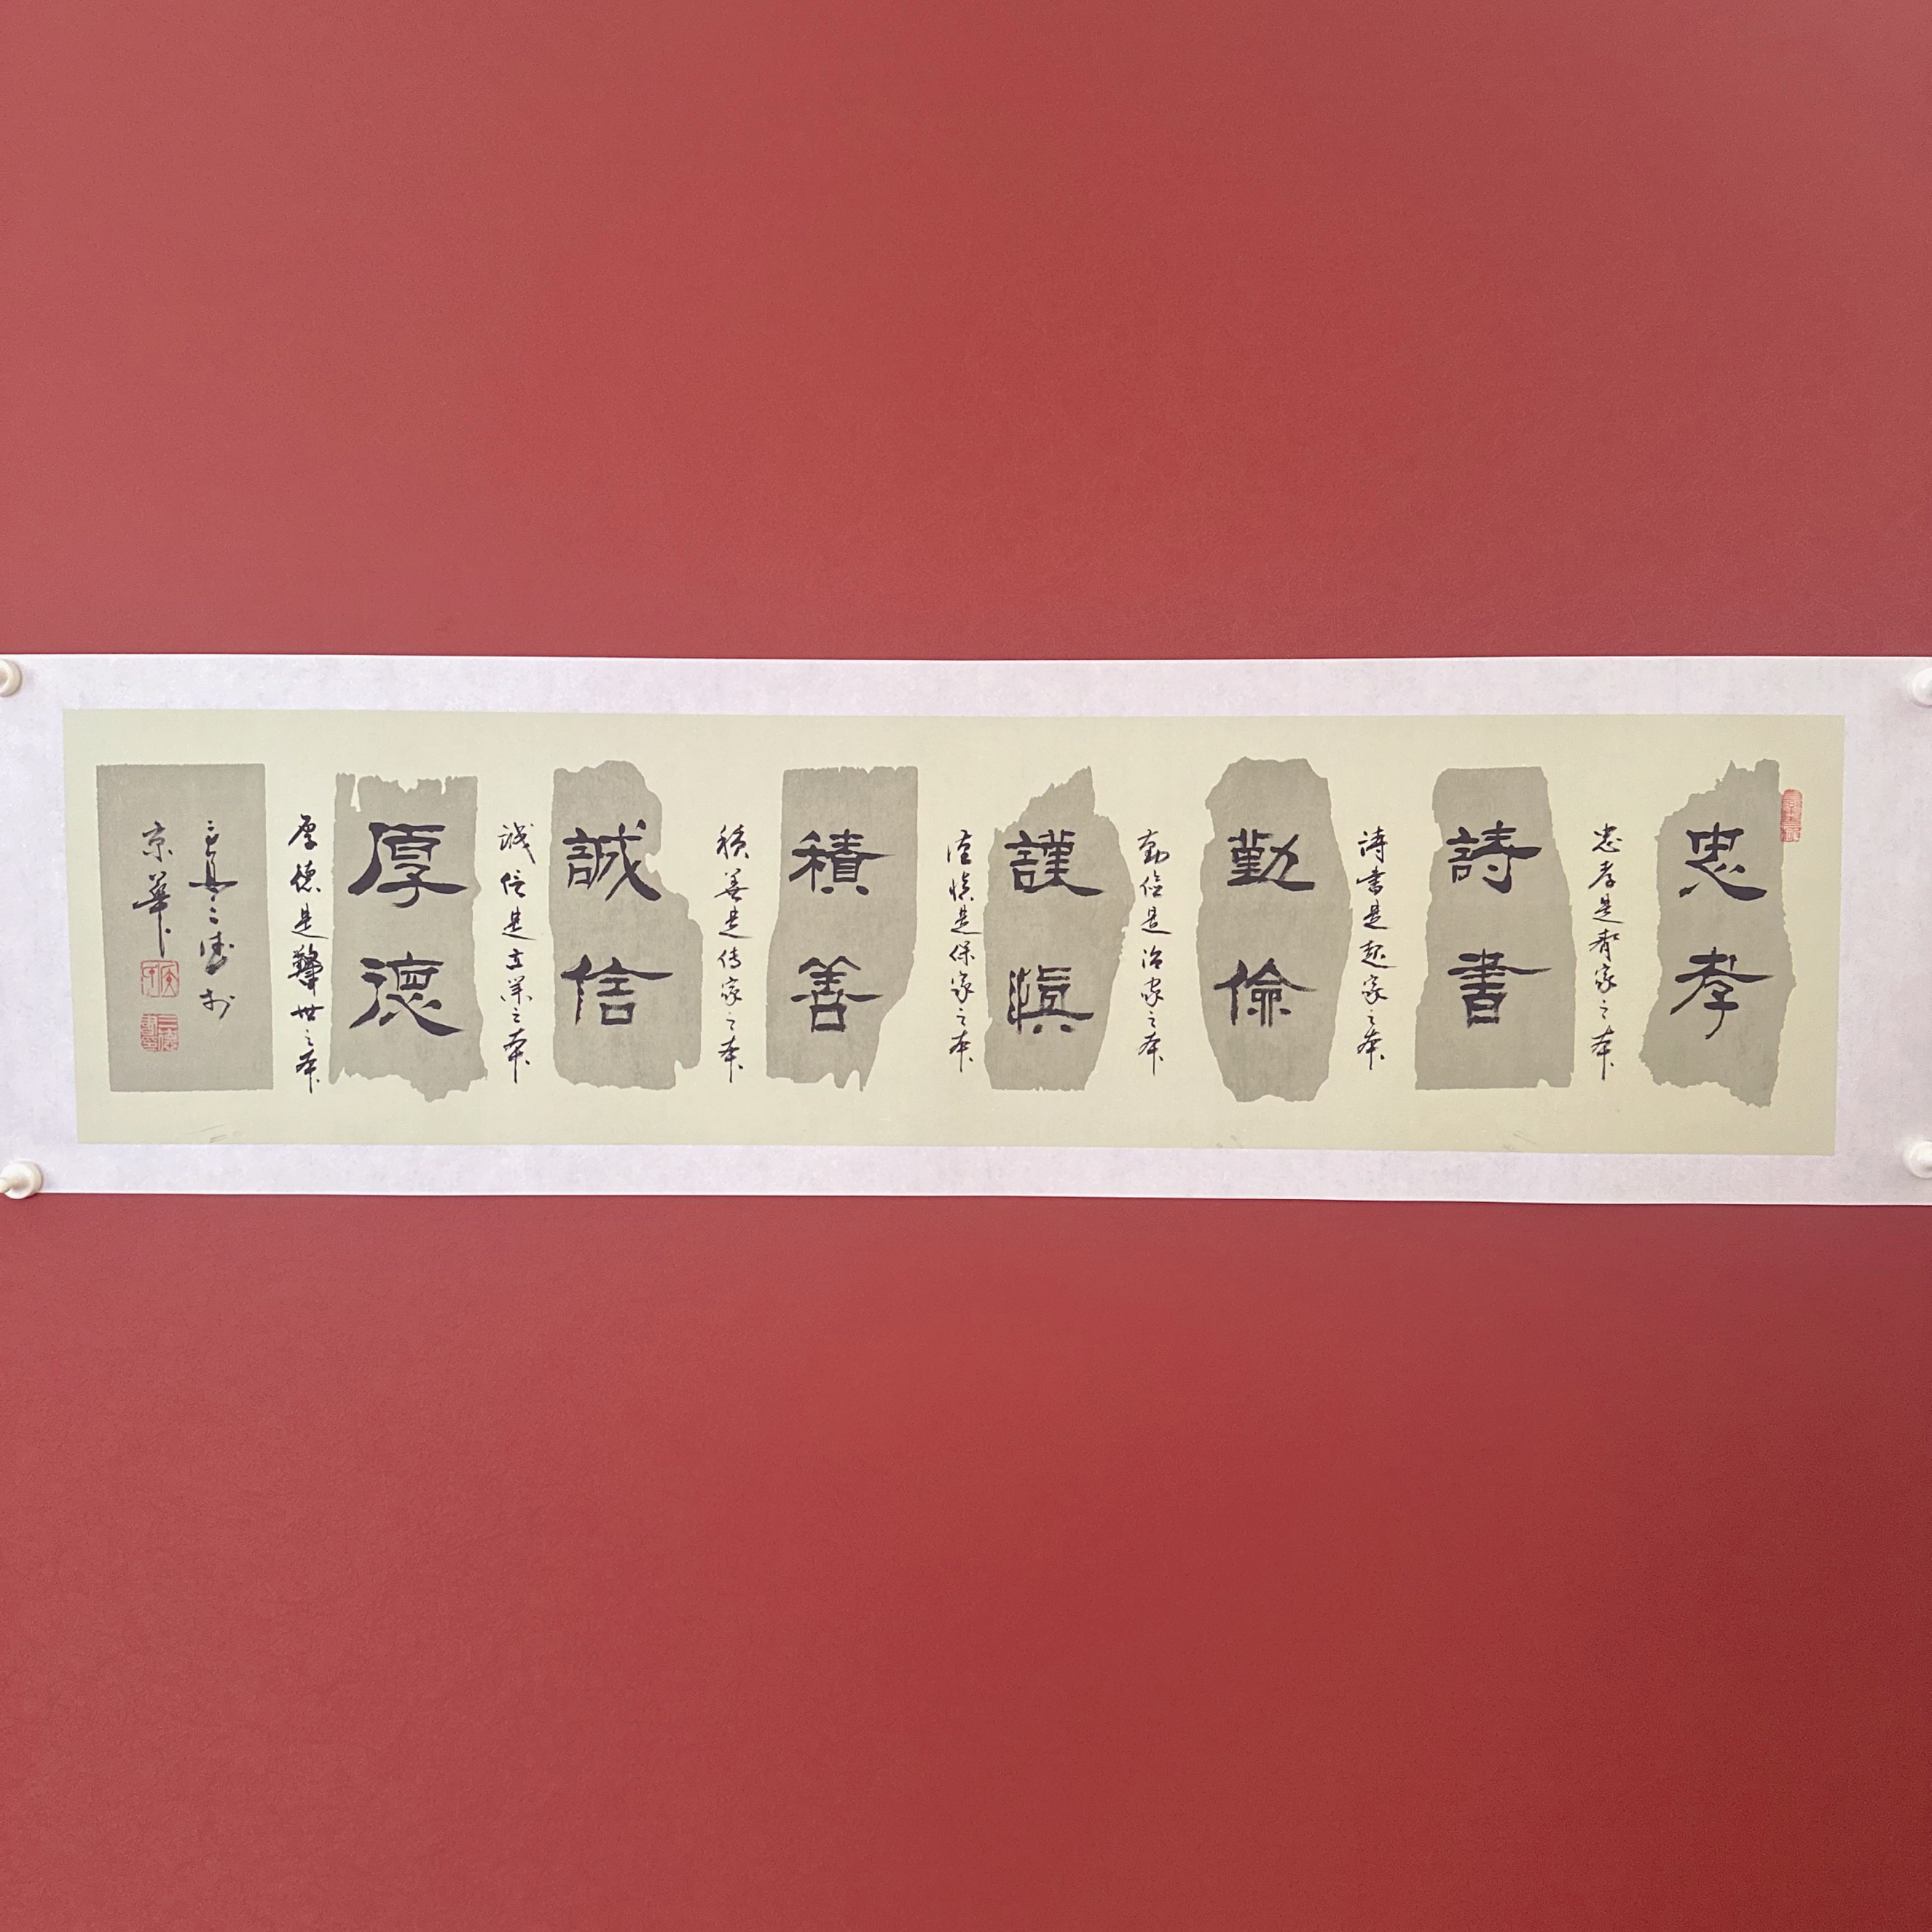 忠孝
忠孝是齊家之本
詩書
詩書是起家之本
勤儉
勤儉是治家之本
謹慎
谨慎是保家之本
積善
積善是传家之本
誠信
诚信是立業之本
厚德
厚德是警世之本
京華